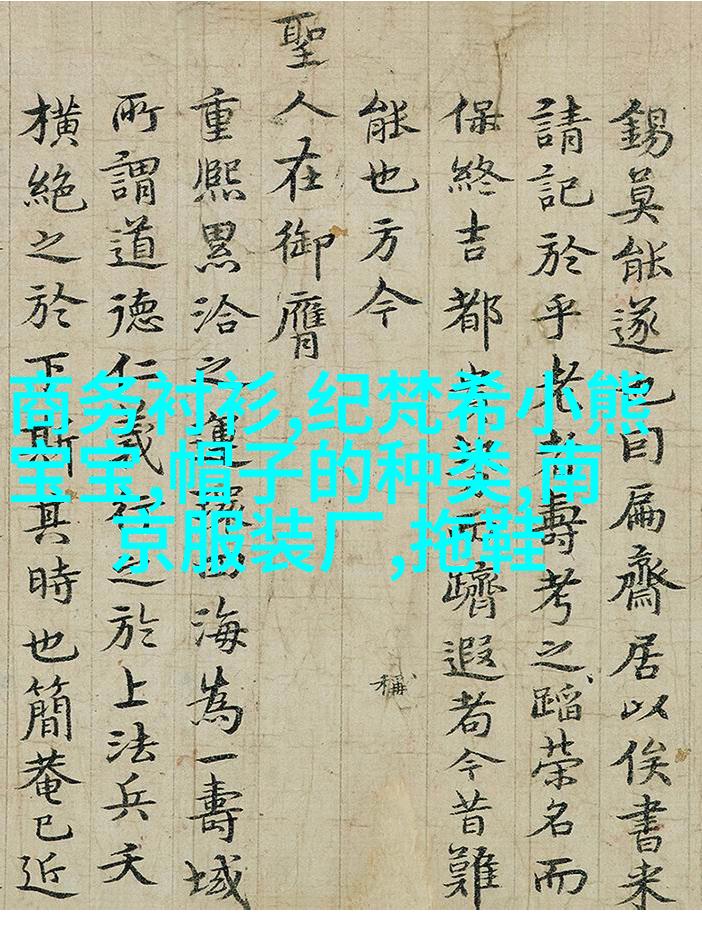 錫莫能遂也曰扁齋居以俟書来
請記於乎老者壽考之蹈榮名而
保終吉都榮躋遐者今昔難
能也方今
稱
聖人在御膺
重熙累洽之運海為一壽域
所謂道德仁義行之於上法兵夭
橫絶之於下斯其時也簡菴已近
商务衬衫,纪梵希小熊
宝宝,帽子的种类,南
京服装厂,拖鞋